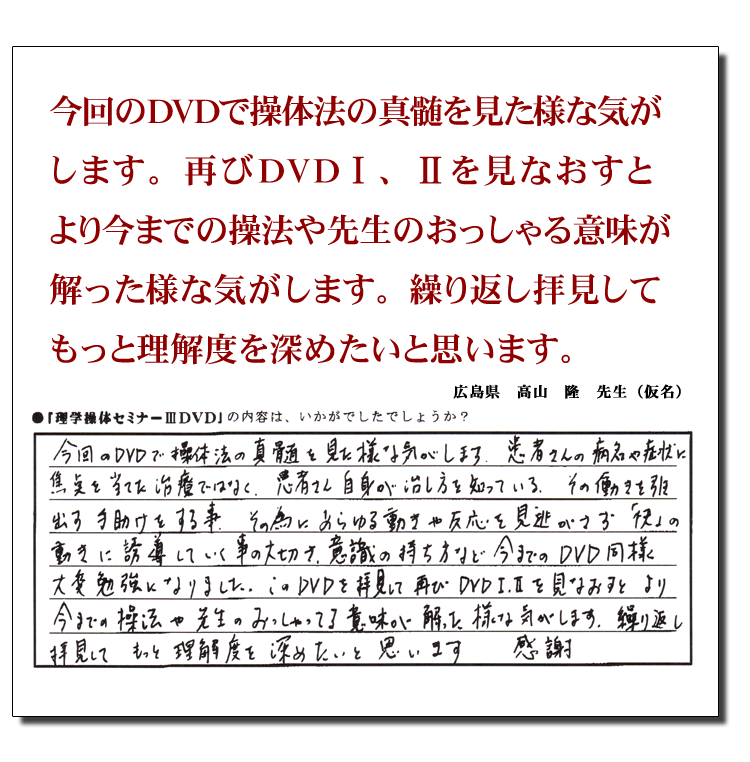 今回のDVDで操体法の真髄を見た様な気が
します。再びDVDⅠ、Ⅱを見なおすと
より今までの操法や先生のおっしゃる意味が
解った様な気がします。繰り返し拝見して
もっと理解度を深めたいと思います。
広島県　高山　隆　先生（仮名）
●『理学操体セミナーⅢDVD』の内容は、いかがでしたでしょうか？
今回のDVDで操体法の真髄を見た様な気がします。患者さんの病名や症状に
焦点を当てた治療ではなく、患者さん自身が治し方を知っている。その働きを引き
出す手助けをする事。その為にあらゆる動きや反応を見逃がさず「快」の
動きに誘導していく事の大切さ、意識の持ち方など今までのDVD同様
大変勉強になりました。このDVDを拝見して再びDVDⅠ.Ⅱを見なおすとより
今までの操法や先生のおっしゃってる意味が解った様な気がします。繰り返し
拝見してもっと理解度を深めたいと思います　感謝